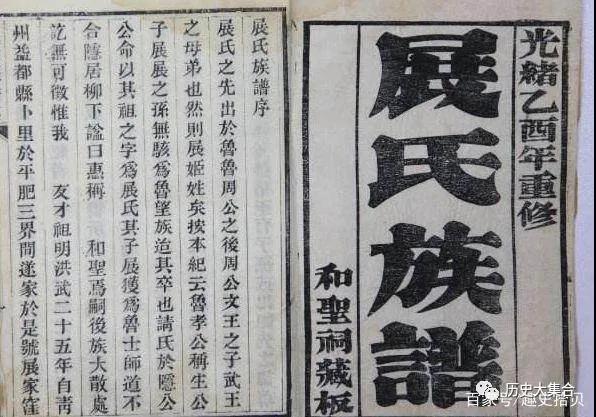 光緒乙酉年重修
展氏族譜
和聖祠藏板
展氏族譜序
展氏之先出於魯魯周公之後周公文王之子武王
之母弟也然則展姬姓矣按本紀云魯孝公稱生公
子展展之孫無駭為魯望族迨其卒也請氏於隱公
公命以其祖之字為展氏其子展獲為魯士師道不
合隱居柳下諡曰惠稱 和聖焉嗣後族大散處
訖無可徵惟我 友才祖明洪武二十五年自青
州益都縣卜里於平肥三界間遂家於是號展家窪
历史大集合
百家号/趣史拾贝